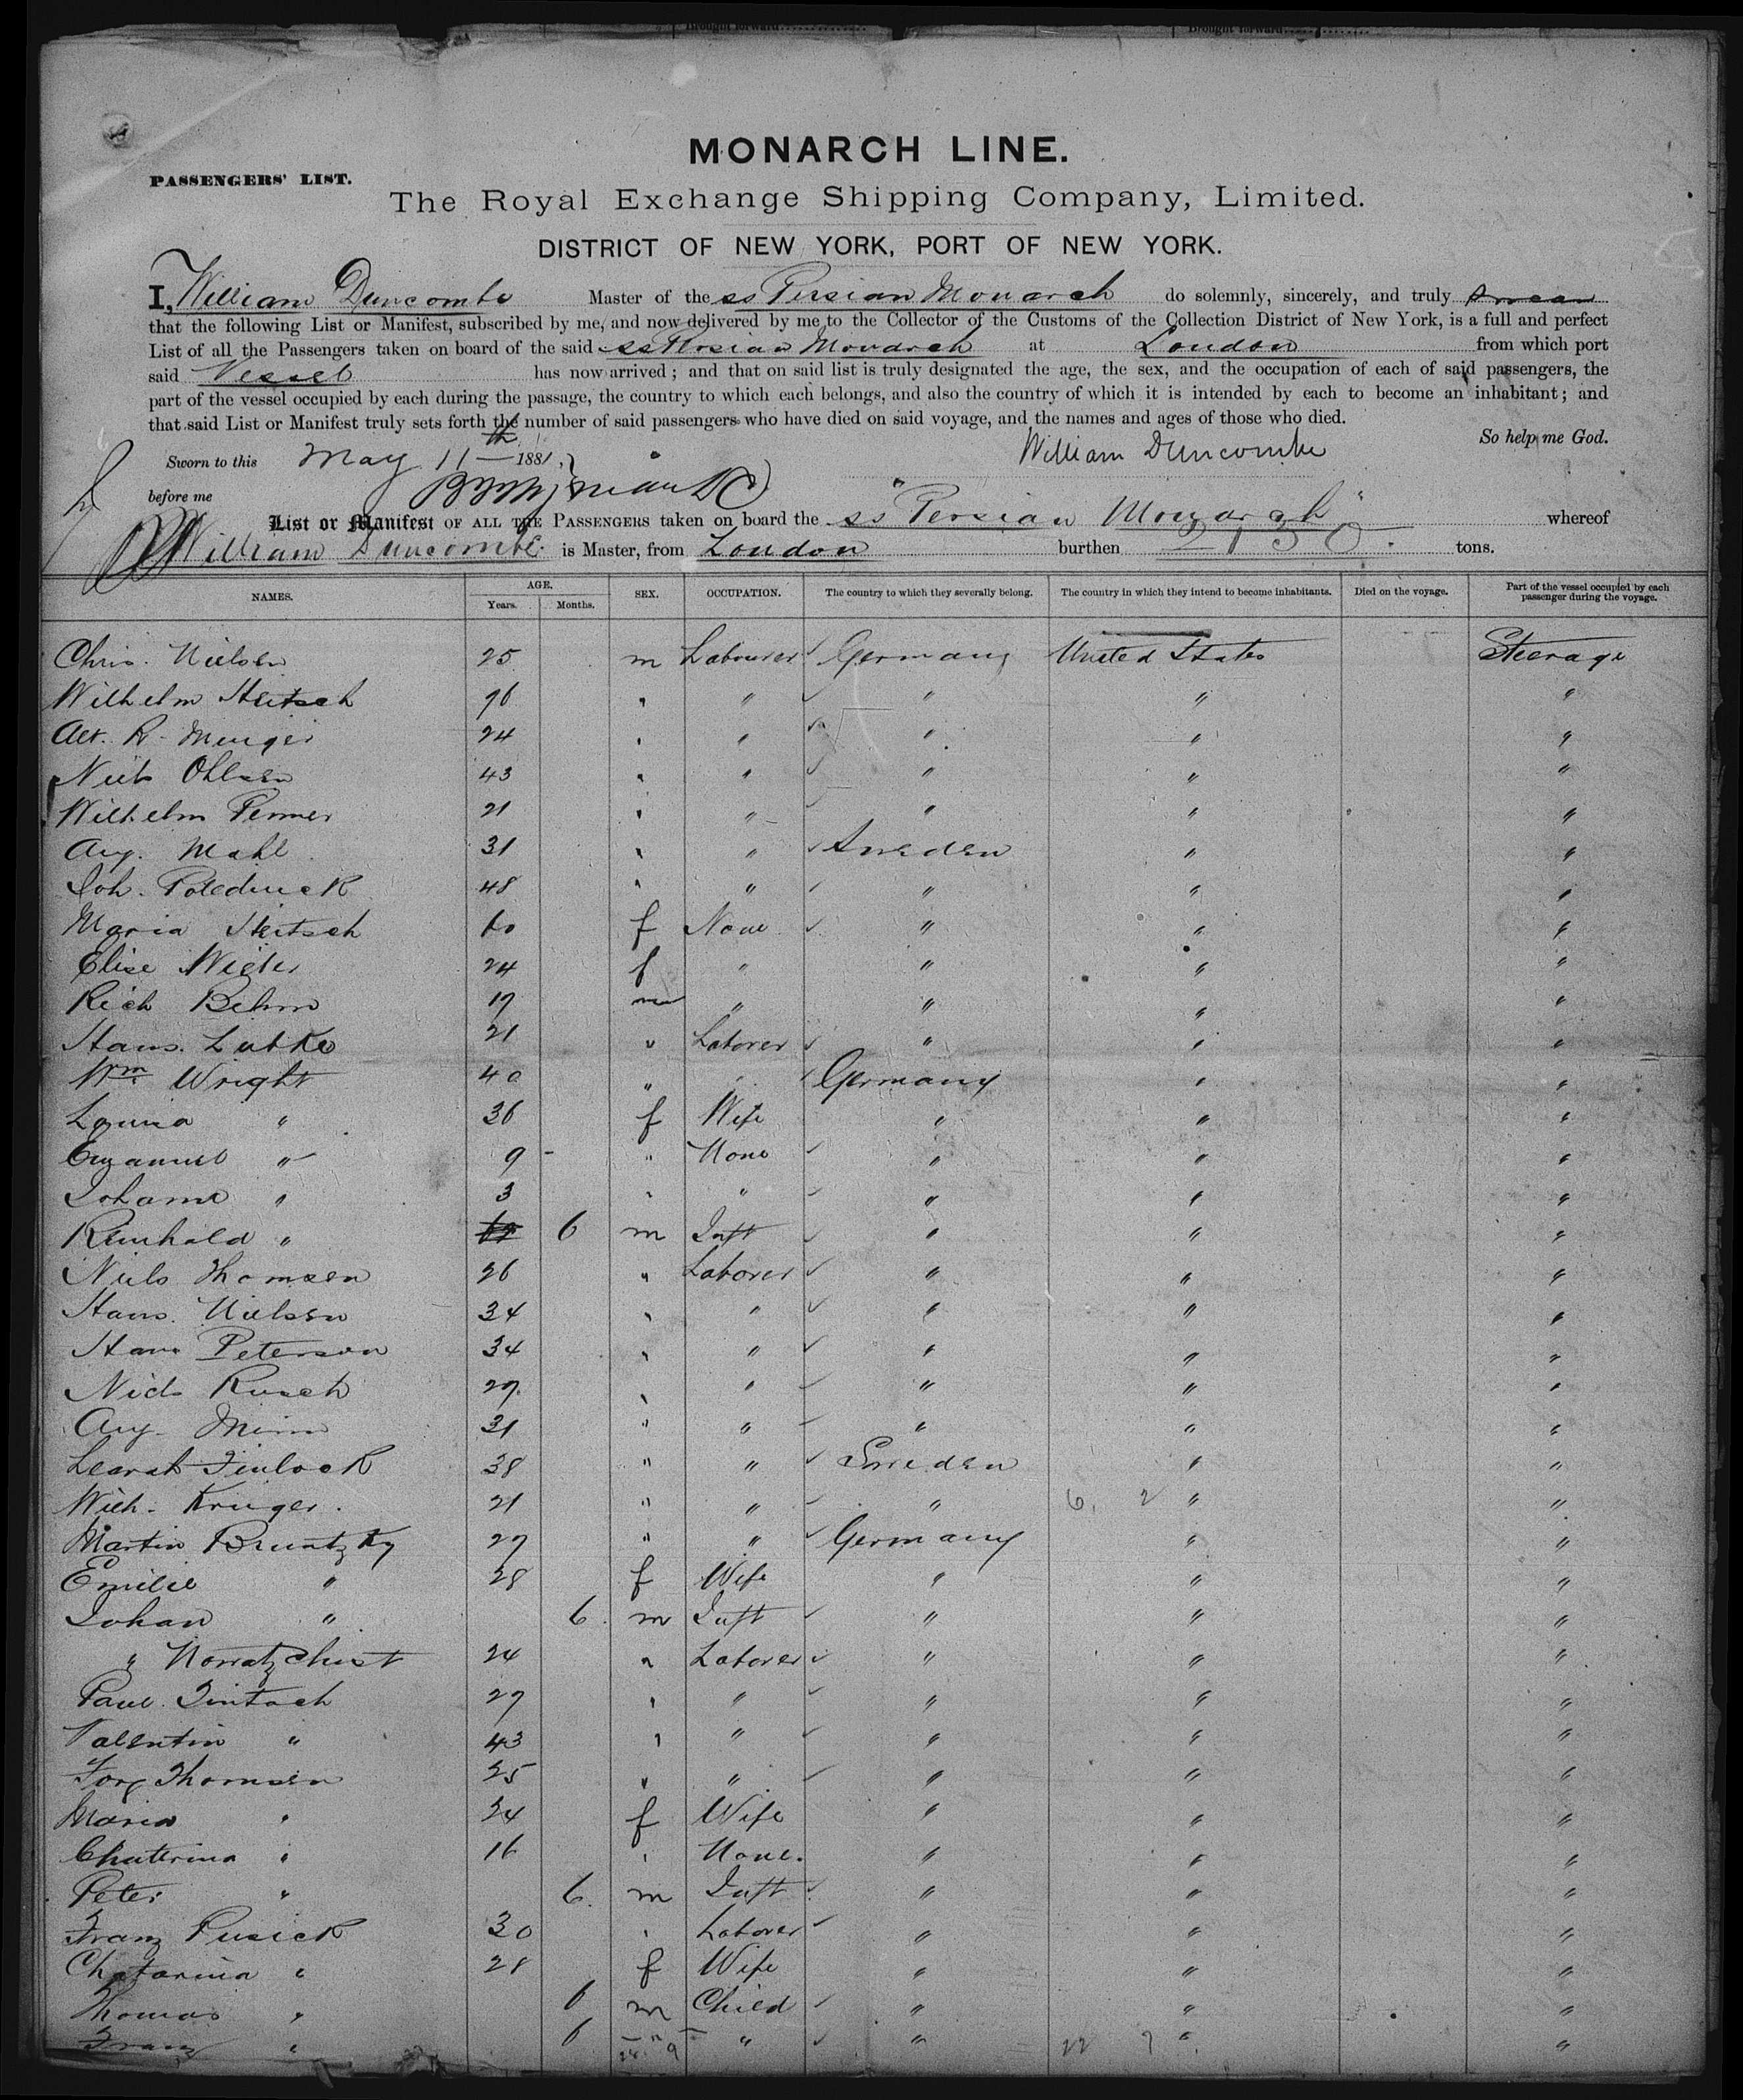 Brought forward.............. Brought forward..............
MONARCH LINE.
PASSENGERS' LIST.
The Royal Exchange Shipping Company, Limited.
DISTRICT OF NEW YORK, PORT OF NEW YORK.
I, William Duncombe Master of the ss Persian Monarch do solemnly, sincerely, and truly swear
that the following List or Manifest, subscribed by me, and now delivered by me to the Collector of the Customs of the Collection District of New York, is a full and perfect
List of all the Passengers taken on board of the said ss Persian Monarch at London from which port
said Vessel has now arrived; and that on said list is truly designated the age, the sex, and the occupation of each of said passengers, the
part of the vessel occupied by each during the passage, the country to which each belongs, and also the country of which it is intended by each to become an inhabitant; and
that said List or Manifest truly sets forth the number of said passengers who have died on said voyage, and the names and ages of those who died.
So help me God.
Sworn to this May 11th 1881, William Duncombe
before me
List or Manifest OF ALL THE PASSENGERS taken on board the ss "Persian Monarch" whereof
William Duncombe is Master, from London burthen 2130. tons.
NAMES. AGE. Years. Months. SEX. OCCUPATION. The country to which they severally belong. The country in which they intend to become inhabitants. Died on the voyage. Part of the vessel occupied by each passenger during the voyage.
Chris. Nielsen 25 m Labourer Germany United States Steerage
Wilhelm 26 " " " " "
24 " " " " "
Niels Ohlsen 43 " " " " "
Wilhelm Penner 21 " " " " "
Aug. Mahl 31 " " Sweden " "
Joh. 48 " " " " "
Maria 60 f None " " "
Elise 24 f " " " "
Rich Behm 17 m " " " "
Hans. Lubke 21 " Laborer " " "
Wm Wright 40 " " Germany " "
Louisa " 36 f Wife " " "
Emanuel " 9 " None " " "
Johanne " 3 " " " " "
Reinhold " 6 m Inft " " "
Niels Thomsen 26 " Laborer " " "
Hans. Nielsen 34 " " " " "
Hans Peterson 34 " " " " "
Niels Rusch 27 " " " " "
Aug. 31 " " " " "
38 " " Sweden " "
Wilh. Kruger. 21 " " " 6, 2 " "
Martin Bruntzky 27 " " Germany " "
Emilie " 28 f Wife " " "
Johan " 6. m Inft " " "
" 24 " Laborer " " "
Paul 27 " " " " "
Valentin " 43 " " " " "
Thomsen 25 " " " " "
Maria " 24 f Wife " " "
Chaterina " 16 " None. " " "
Peter " 6. m Inft " " "
Franz Pusick 30 " Laborer " " "
Chatarina " 28 f Wife " " "
Thomas " 6 m Child " " "
Franz " 6 " " " 22 7 " "